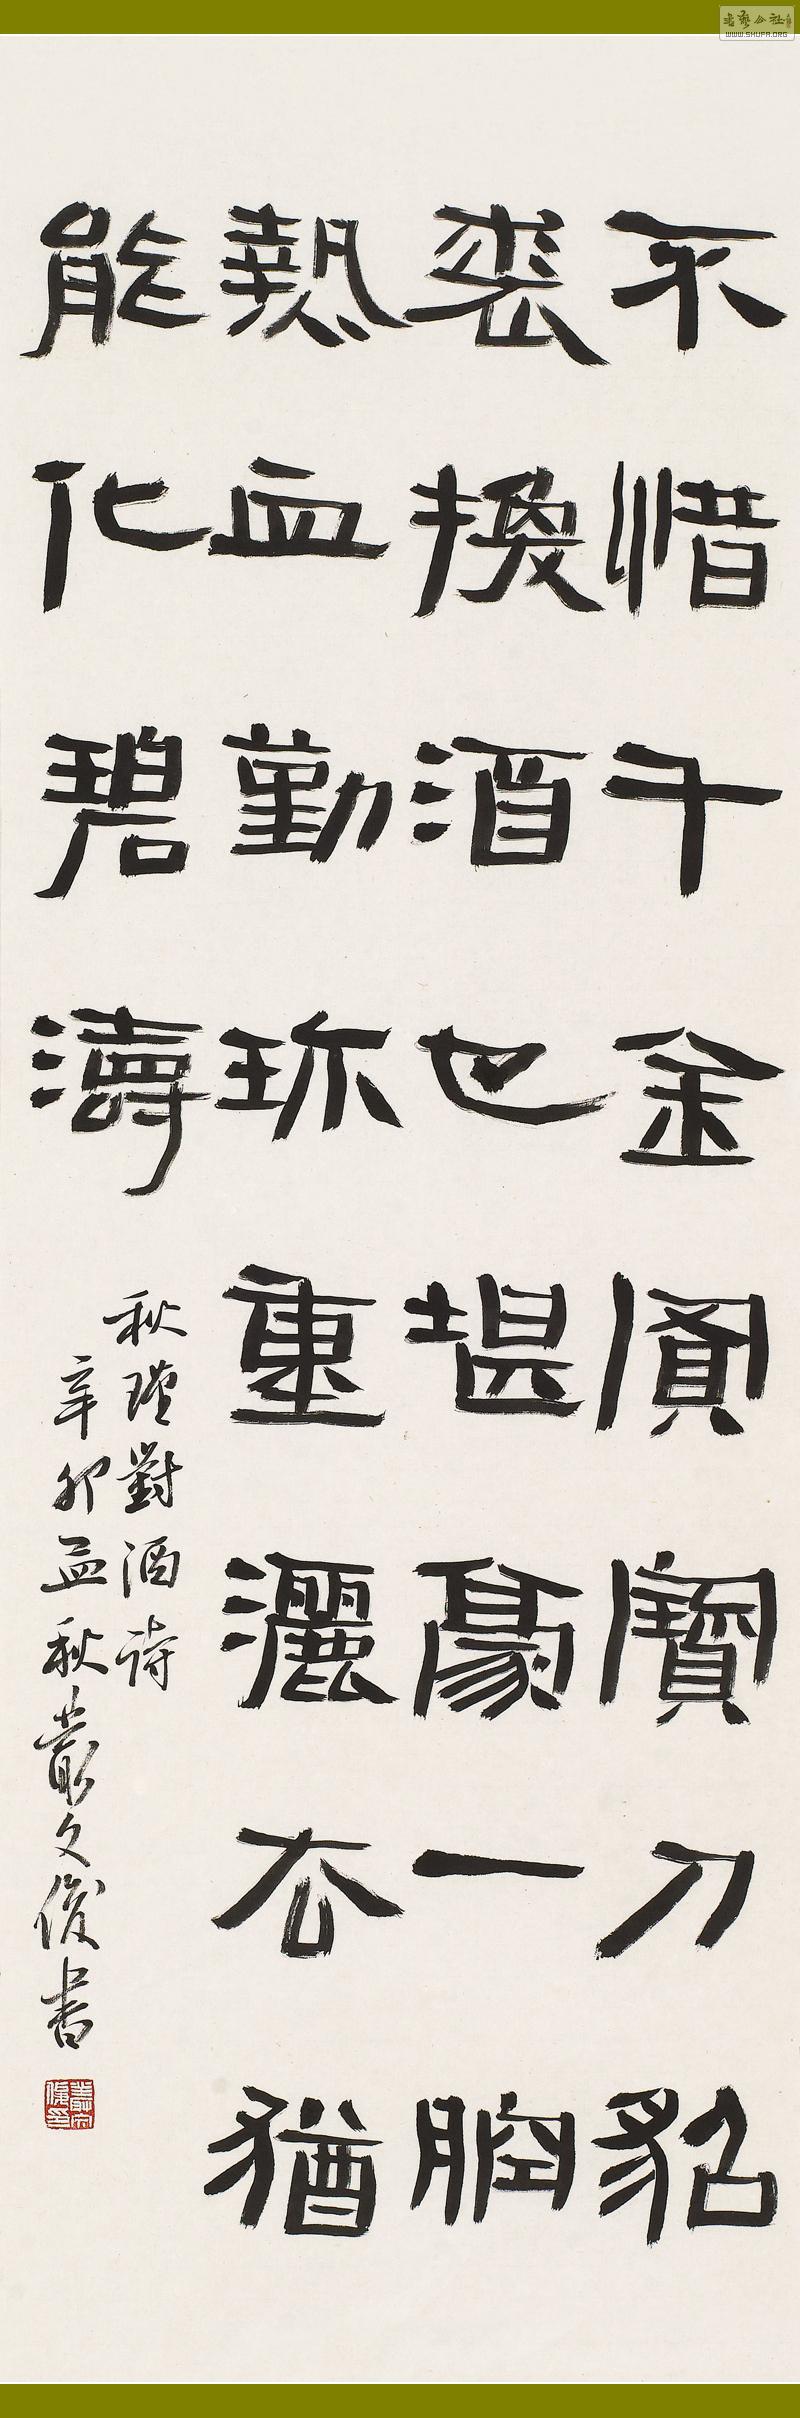 不惜千金買寶刀貂
裘換酒也堪豪一腔
熱血勤珎重灑去猶
能化碧濤
秋瑾對酒詩
辛卯孟秋叢文俊書
叢文俊印
书艺公社
WWW.SHUFA.ORG